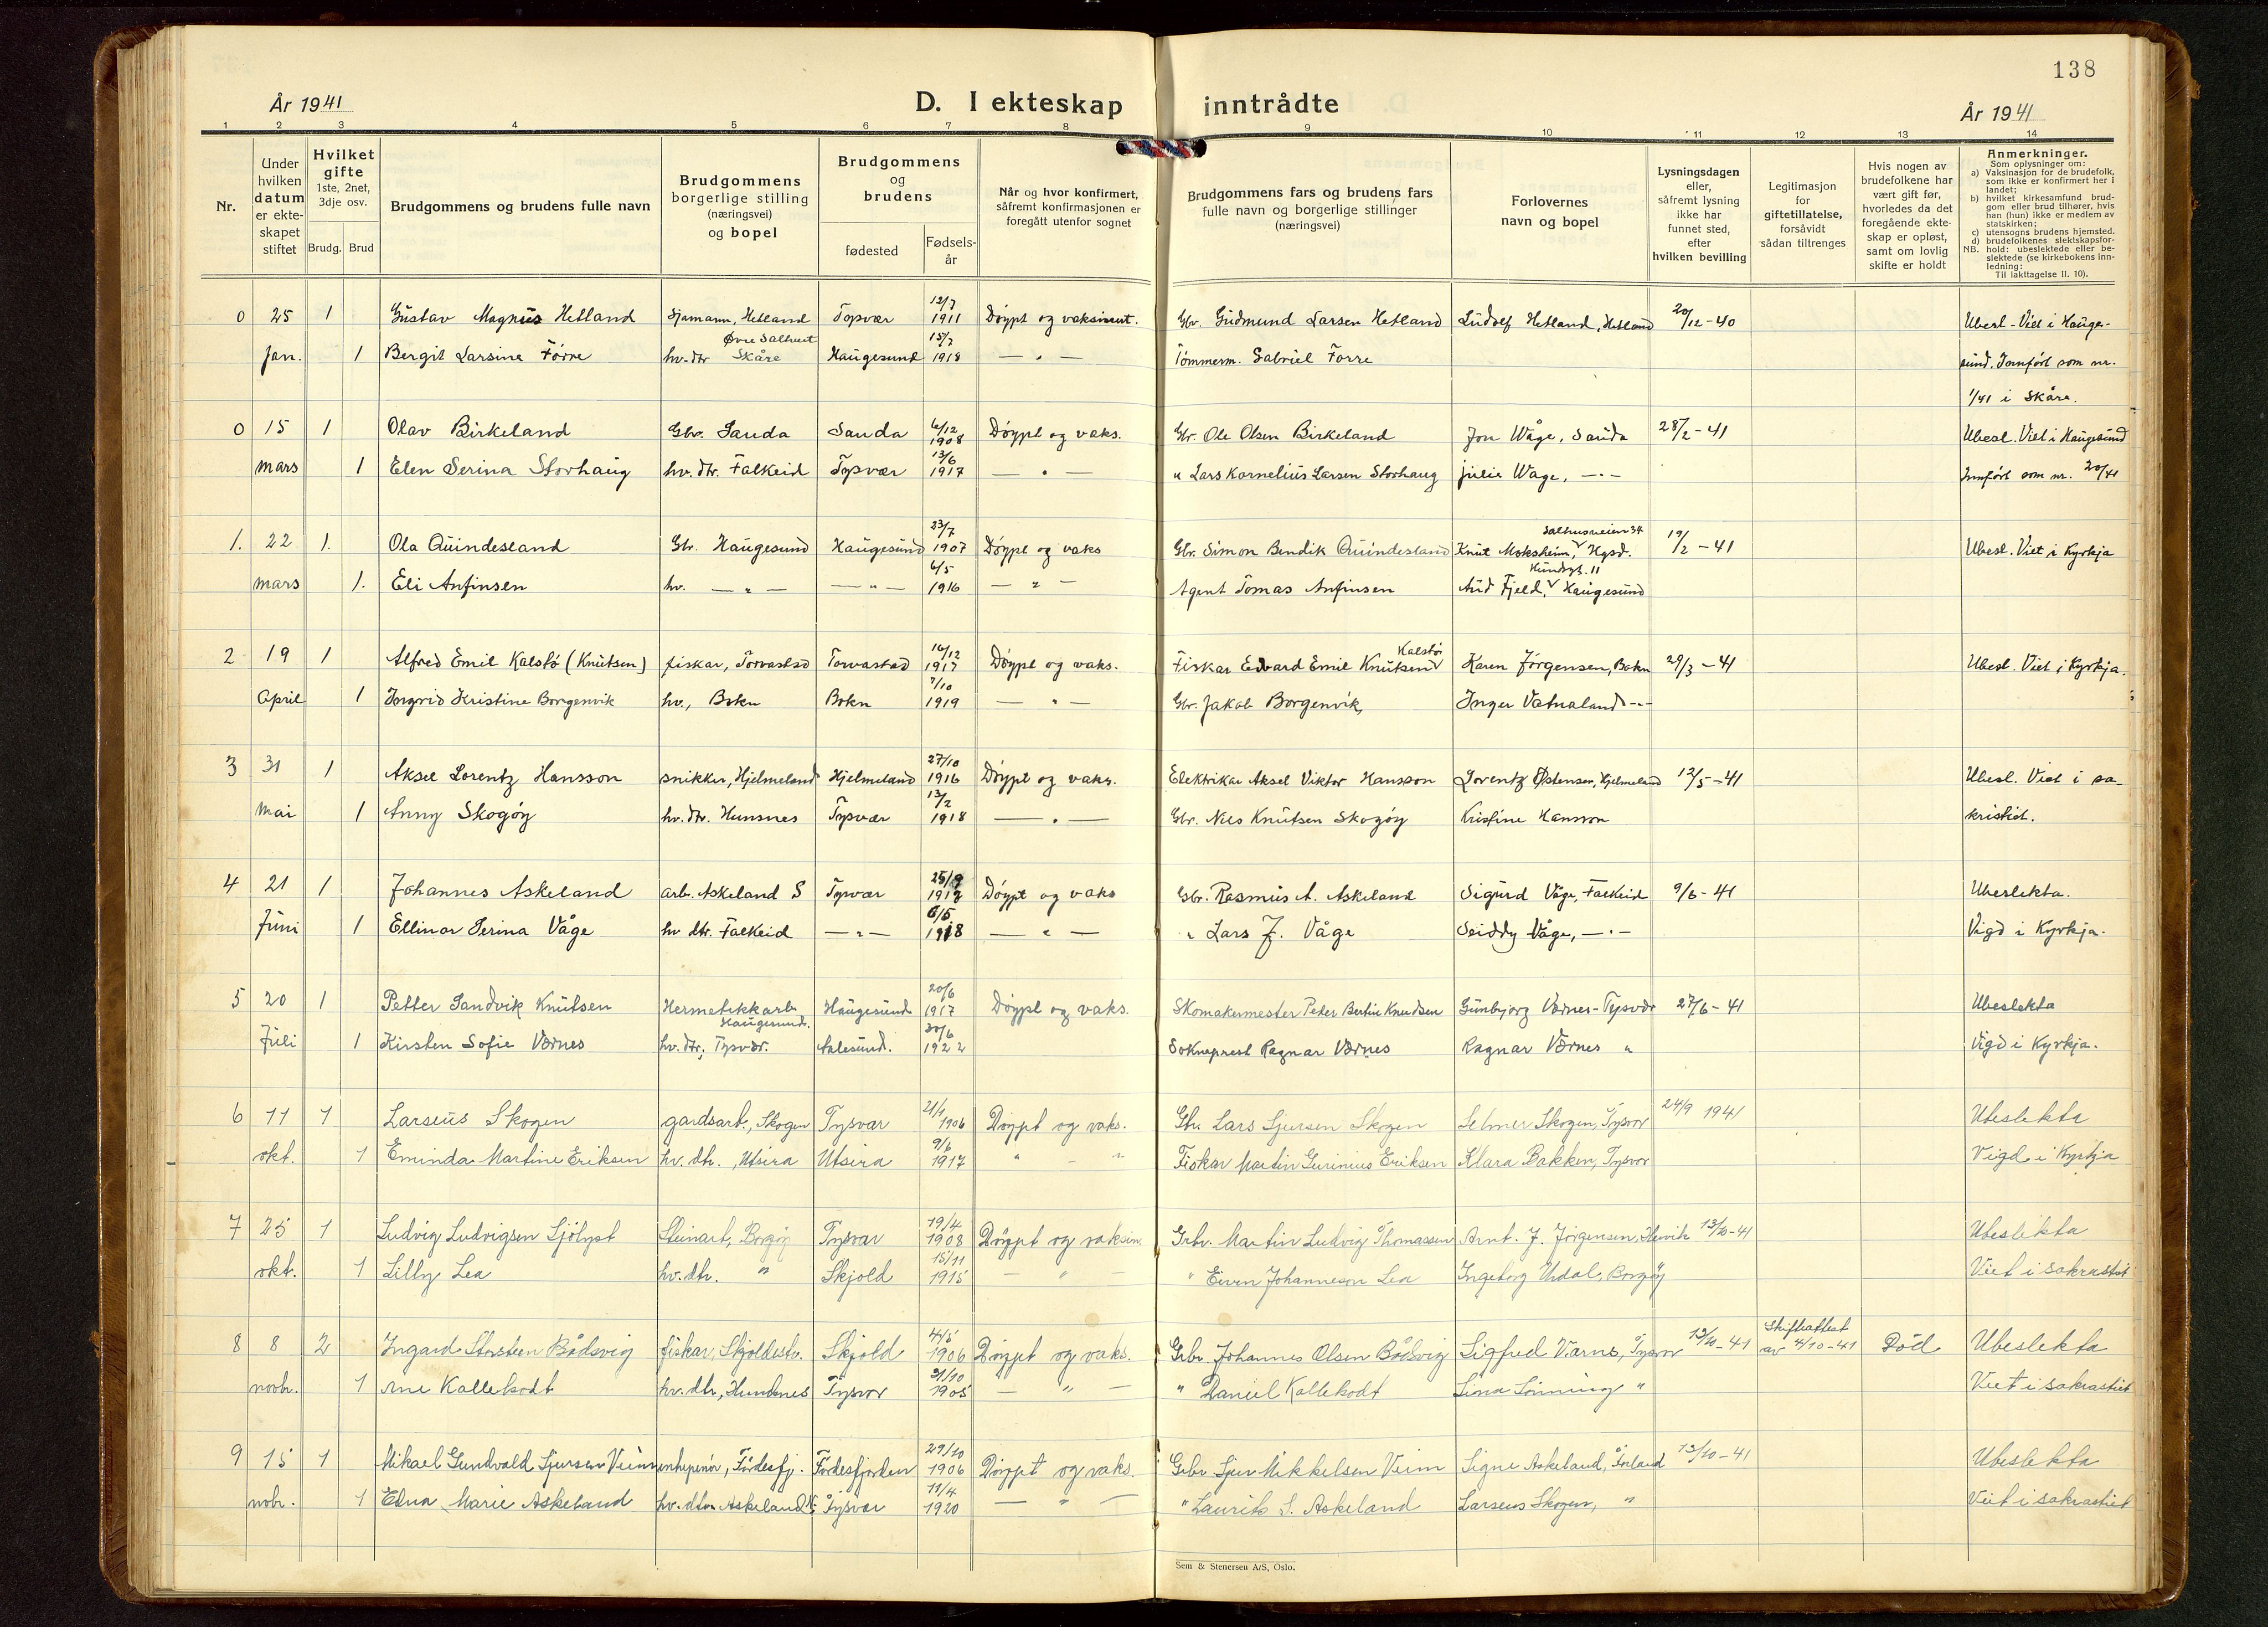 138
År 1941 D. I ekteskap inntrådte År 1941
1 2 3 4 5 6 7 8 9 10 11 12 13 14
Nr.
Under hvilken datum er ekteskapet stiftet
Hvilket gifte 1ste, 2net, 3dje osv.
Brudg. Brud
Brudgommens og brudens fulle navn
Brudgommens borgerlige stilling (næringsvei) og bopel
Brudgommens og brudens
fødested
Fødselsår
Når og hvor konfirmert, såfremt konfirmasjonen er foregått utenfor sognet
Brudgommens fars og brudens fars fulle navn og borgerlige stillinger (næringsvei)
Forlovernes navn og bopel
Lysningsdagen eller, såfremt lysning ikke har funnet sted, efter hvilken bevilling
Legitimasjon for giftetillatelse, forsåvidt sådan tiltrenges
Hvis nogen av brudefolkene har vært gift før, hvorledes da det foregående ekteskap er opløst, samt om lovlig skifte er holdt
Anmerkninger.
Som oplysninger om:
a) Vaksinasjon for de brudefolk, som ikke er konfirmert her i landet;
b) hvilket kirkesamfund brudgom eller brud tilhører, hvis han (hun) ikke er medlem av statskirken;
c) utensogns brudens hjemsted.
d) brudefolkenes slektskapsforhold: ubeslektede eller beslektede (se kirkebokens innledning:
NB.
Til iakttagelse II. 10).
0 25 1 Gustav Magnus Hetland Sjømann, Hetland Tysvær 12/7 1911 Døypt og vaksinert. Gbr. Gudmund Larsen Hetland Ludolf Hetland, Hetland 20/12-40 Ubesl. - Viet i Hauge-
jan. 1 Bergit Larsine Førre hv. dtr Øvre Salhus Skåre Haugesund 15/7 1918 — " — Tømmerm. Gabriel Førre sund. Innført som nr.
1/41 i Skåre.
0 15 1 Olav Birkeland Gbr. Sauda Sauda 6/12 1908 Døypt og vaks. Gbr. Ole Olsen Birkeland Jon Våge, Sauda 28/2-41 Ubesl. Viet i Haugesund
mars 1 Elen Serina Storhaug hv. dtr. Falkeid Tysvær 13/6 1917 — " — " Lars Kornelius Larsen Storhaug Julie Våge, — " — Innført som nr. 20/41
1. 22 1. Ola Quindesland Gbr. Haugesund Haugesund 23/7 1907 Døypt og vaks Gbr. Simon Bendik Quindesland Knut Moksheim, Salhusveien 34 Hgsd. 19/2-41 Ubesl. Viet i Kyrkja
mars 1. Eli Anfinsen hv. — " — — " — 6/5 1916 — " — Agent Tomas Anfinsen Aud Fjeld, 11 Haugesund
2 19 1 Alfred Emil Kalstø (Knutsen) fiskar, Torvastad Torvastad 16/12 1917 Døypt og vaks. Fiskar Edvard Emil Knutsen Kalstø Karen Jørgensen, Bokn 29/3-41 Ubesl. Viet i Kyrkja.
April 1 Ingrid Kristine Borgenvik hv., Bokn Bokn 7/10 1919 — " — Gbr. Jakob Borgenvik, Inger Vatnaland — " —
3 31 1 Aksel Lorentz Hansson snikker, Hjelmeland Hjelmeland 27/10 1916 Døypt og vaks. Elektrikar Aksel Viktor Hansson Lorentz Østensen, Hjelmeland 12/5-41 Ubesl. Viet i sa-
Mai 1 Anny Skogøy hv. dtr. Hunsnes Tysvær 13/2 1918 — " — Gbr. Nils Knutsen Skogøy Kristine Hansson kristiet.
4 21 1 Johannes Askeland arb. Askeland S Tysvær 25/9 1917 Døypt og vaks Gbr. Rasmus A. Askeland Sigurd Våge, Falkeid 9/6-41 Ubeslekta.
Juni 1 Ellinor Serina Våge hv dtr. Falkeid — " — 6/5 1918 — " — " Lars J. Våge Seiddy Våge, — " — Vigd i Kyrkja.
5 20 1 Petter Sandvik Knutsen Hermetikkarb Haugesund. Haugesund 20/6 1917 Døypt og vaks. Skomakermester Peter Bertin Knudsen Gunbjørg Værnes - Tysvær 27/6-41 Ubeslekta
Juli 1 Kirsten Sofie Værnes hv. dtr., Tysvær. Aalesund. 30/6 1922 Sokneprest Ragnar Værnes Ragnar Værnes " Vigd i Kyrkja.
6 11 1 Larseus Skogen gardsarb., Skogen Tysvær 21/1 1906 Døypt og vaks. Gbr. Lars Sjursen Skogen Selmer Skogen, Tysvær 24/9 1941 Ubeslekta
okt. 1 Eminda Martine Eriksen hv. dtr., Utsira Utsira 9/6 1917 " — " Fiskar Martin Gurinius Eriksen Klara Bakken, Tysvær Vigd i Kyrkja
7 25 1 Ludvig Ludvigsen Sjølyst Steinarb, Borgøy Tysvær 19/4 1908 Døypt og vaksin. Grbr. Martin Ludvig Thomassen Arnt. J. Jørgensen, 13/10-41 Ubeslekta
okt. 1 Lilly Lea hv. dtr. " Skjold 15/11 1915 — " — " Eivin Johanneson Lea Ingeborg Urdal, Borgøy Viet i sakrastiet
8 8 2 Ingard Storsteen Bådsvig fiskar, Skjoldestr. Skjold 4/5 1906 Døypt og vaks. Grbr. Johannes Olsen Bådsvig Sigfred Værnes, Tysvær 13/10-41 Skifteattest av 4/10-41 Død Ubeslekta
novbr. 1 Ane Kallekodt hv. dtr, Hundsnes Tysvær 21/10 1905 — " — " Daniel Kallekodt Lina Lønning " Viet i sakrastiet
9 15 1 Mikael Gundvald Sjursen Veim , Førdesfj. Førdesfjorden 29/10 1906 Døypt og vaks. Grbr. Sjur Mikkelsen Veim Signe Askeland, Førland 13/10-41 Ubeslekta
nobr. 1 Edna Marie Askeland hv. dtr. Askeland N. Tysvær 11/4 1920 — " — " Laurits S. Askeland Larseus Skogen, " Viet i sakrastiet
Sem & Stenersen A/S, Oslo.